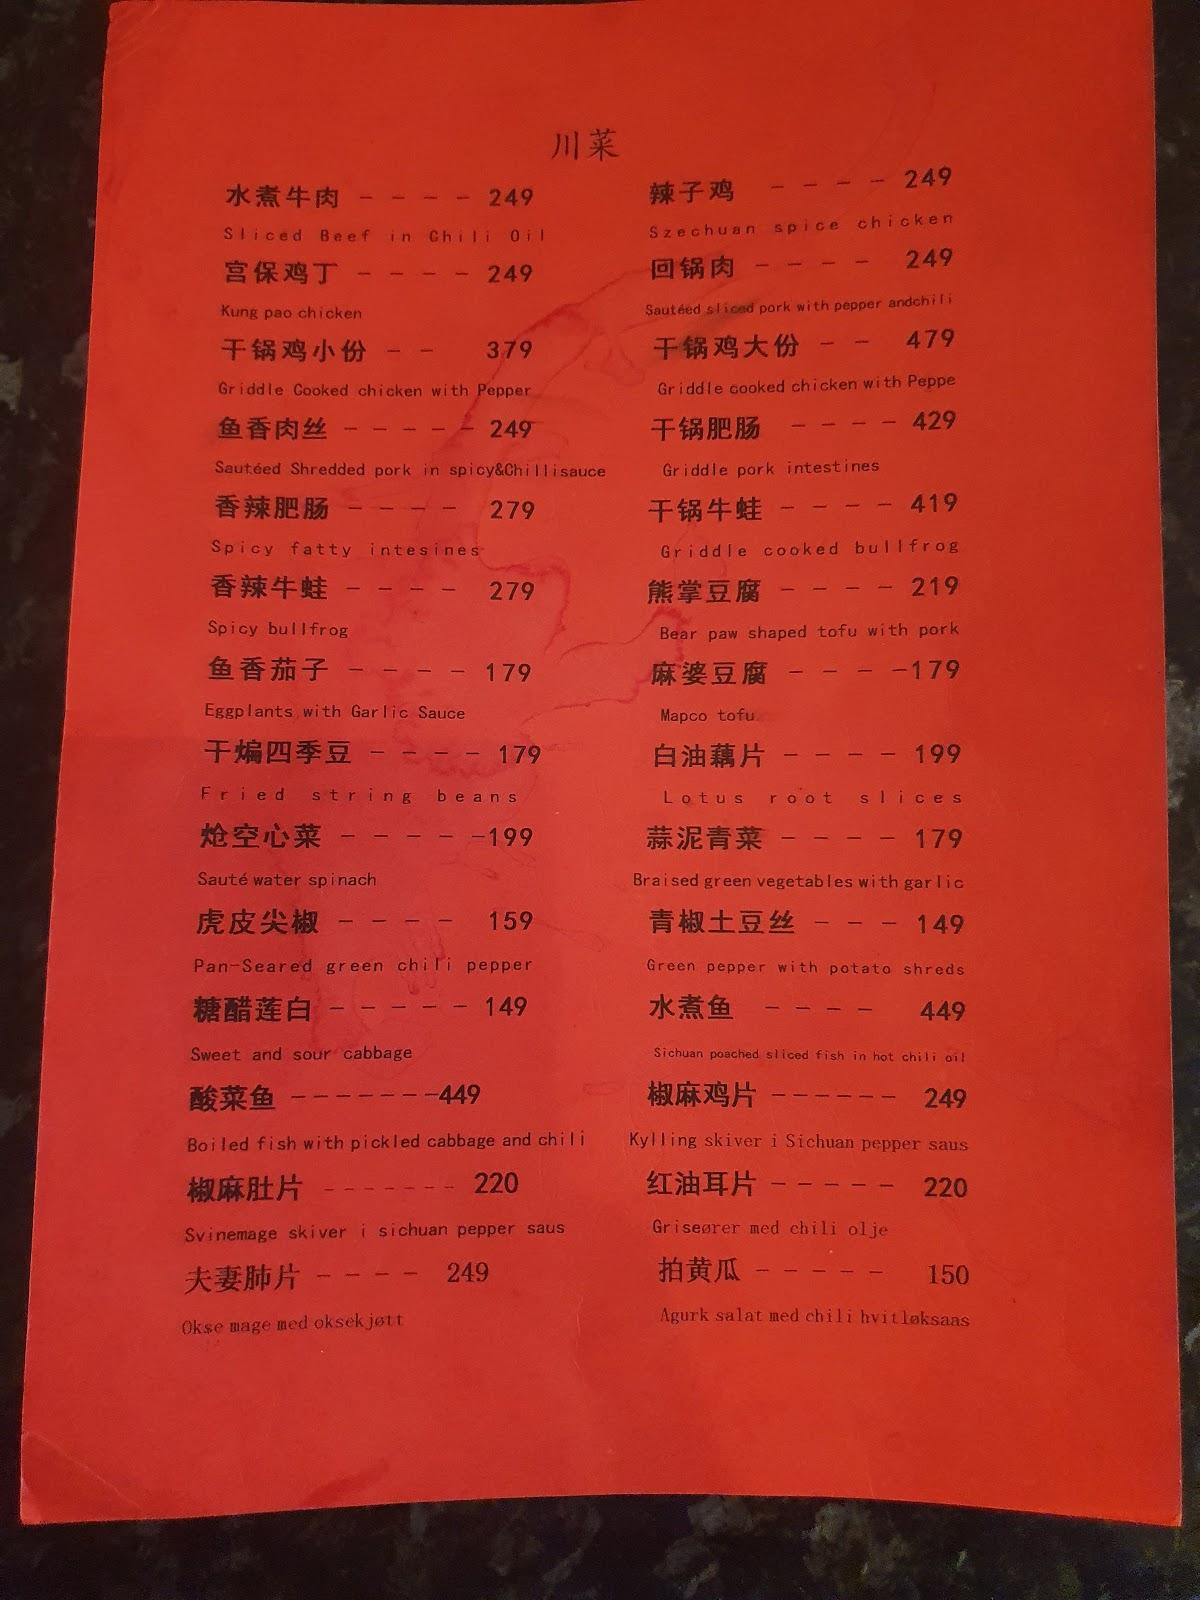 川菜
水煮牛肉 - - - - 249
Sliced Beef in Chili Oil
宫保鸡丁 - - - - 249
Kung pao chicken
干锅鸡小份 - - 379
Griddle Cooked chicken with Pepper
鱼香肉丝 - - - - - 249
Sautéed Shredded pork in spicy&Chillisauce
香辣肥肠 - - - - 279
Spicy fatty intesines
香辣牛蛙 - - - - 279
Spicy bullfrog
鱼香茄子 - - - - 179
Eggplants with Garlic Sauce
干煸四季豆 - - - - 179
Fried string beans
炝空心菜 - - - - -199
Sauté water spinach
虎皮尖椒 - - - - 159
Pan-Seared green chili pepper
糖醋莲白 - - - - - 149
Sweet and sour cabbage
酸菜鱼 -------449
Boiled fish with pickled cabbage and chili
椒麻肚片 ------- 220
Svinemage skiver i sichuan pepper saus
夫妻肺片 - - - - 249
Okse mage med oksekjøtt
辣子鸡 - - - - 249
Szechuan spice chicken
回锅肉 - - - - 249
Sautéed sliced pork with pepper andchili
干锅鸡大份 - - 479
Griddle cooked chicken with Peppe
干锅肥肠 - - - - 429
Griddle pork intestines
干锅牛蛙 - - - - 419
Griddle cooked bullfrog
熊掌豆腐 - - - - 219
Bear paw shaped tofu with pork
麻婆豆腐 - - - -179
Mapco tofu
白油藕片 - - - - 199
Lotus root slices
蒜泥青菜 - - - - 179
Braised green vegetables with garlic
青椒土豆丝 - - - 149
Green pepper with potato shreds
水煮鱼 - - - - 449
Sichuan poached sliced fish in hot chili oil
椒麻鸡片 ------ 249
Kylling skiver i Sichuan pepper saus
红油耳片 - - - - - 220
Griseører med chili olje
拍黄瓜 - - - - - 150
Agurk salat med chili hvitløksaas